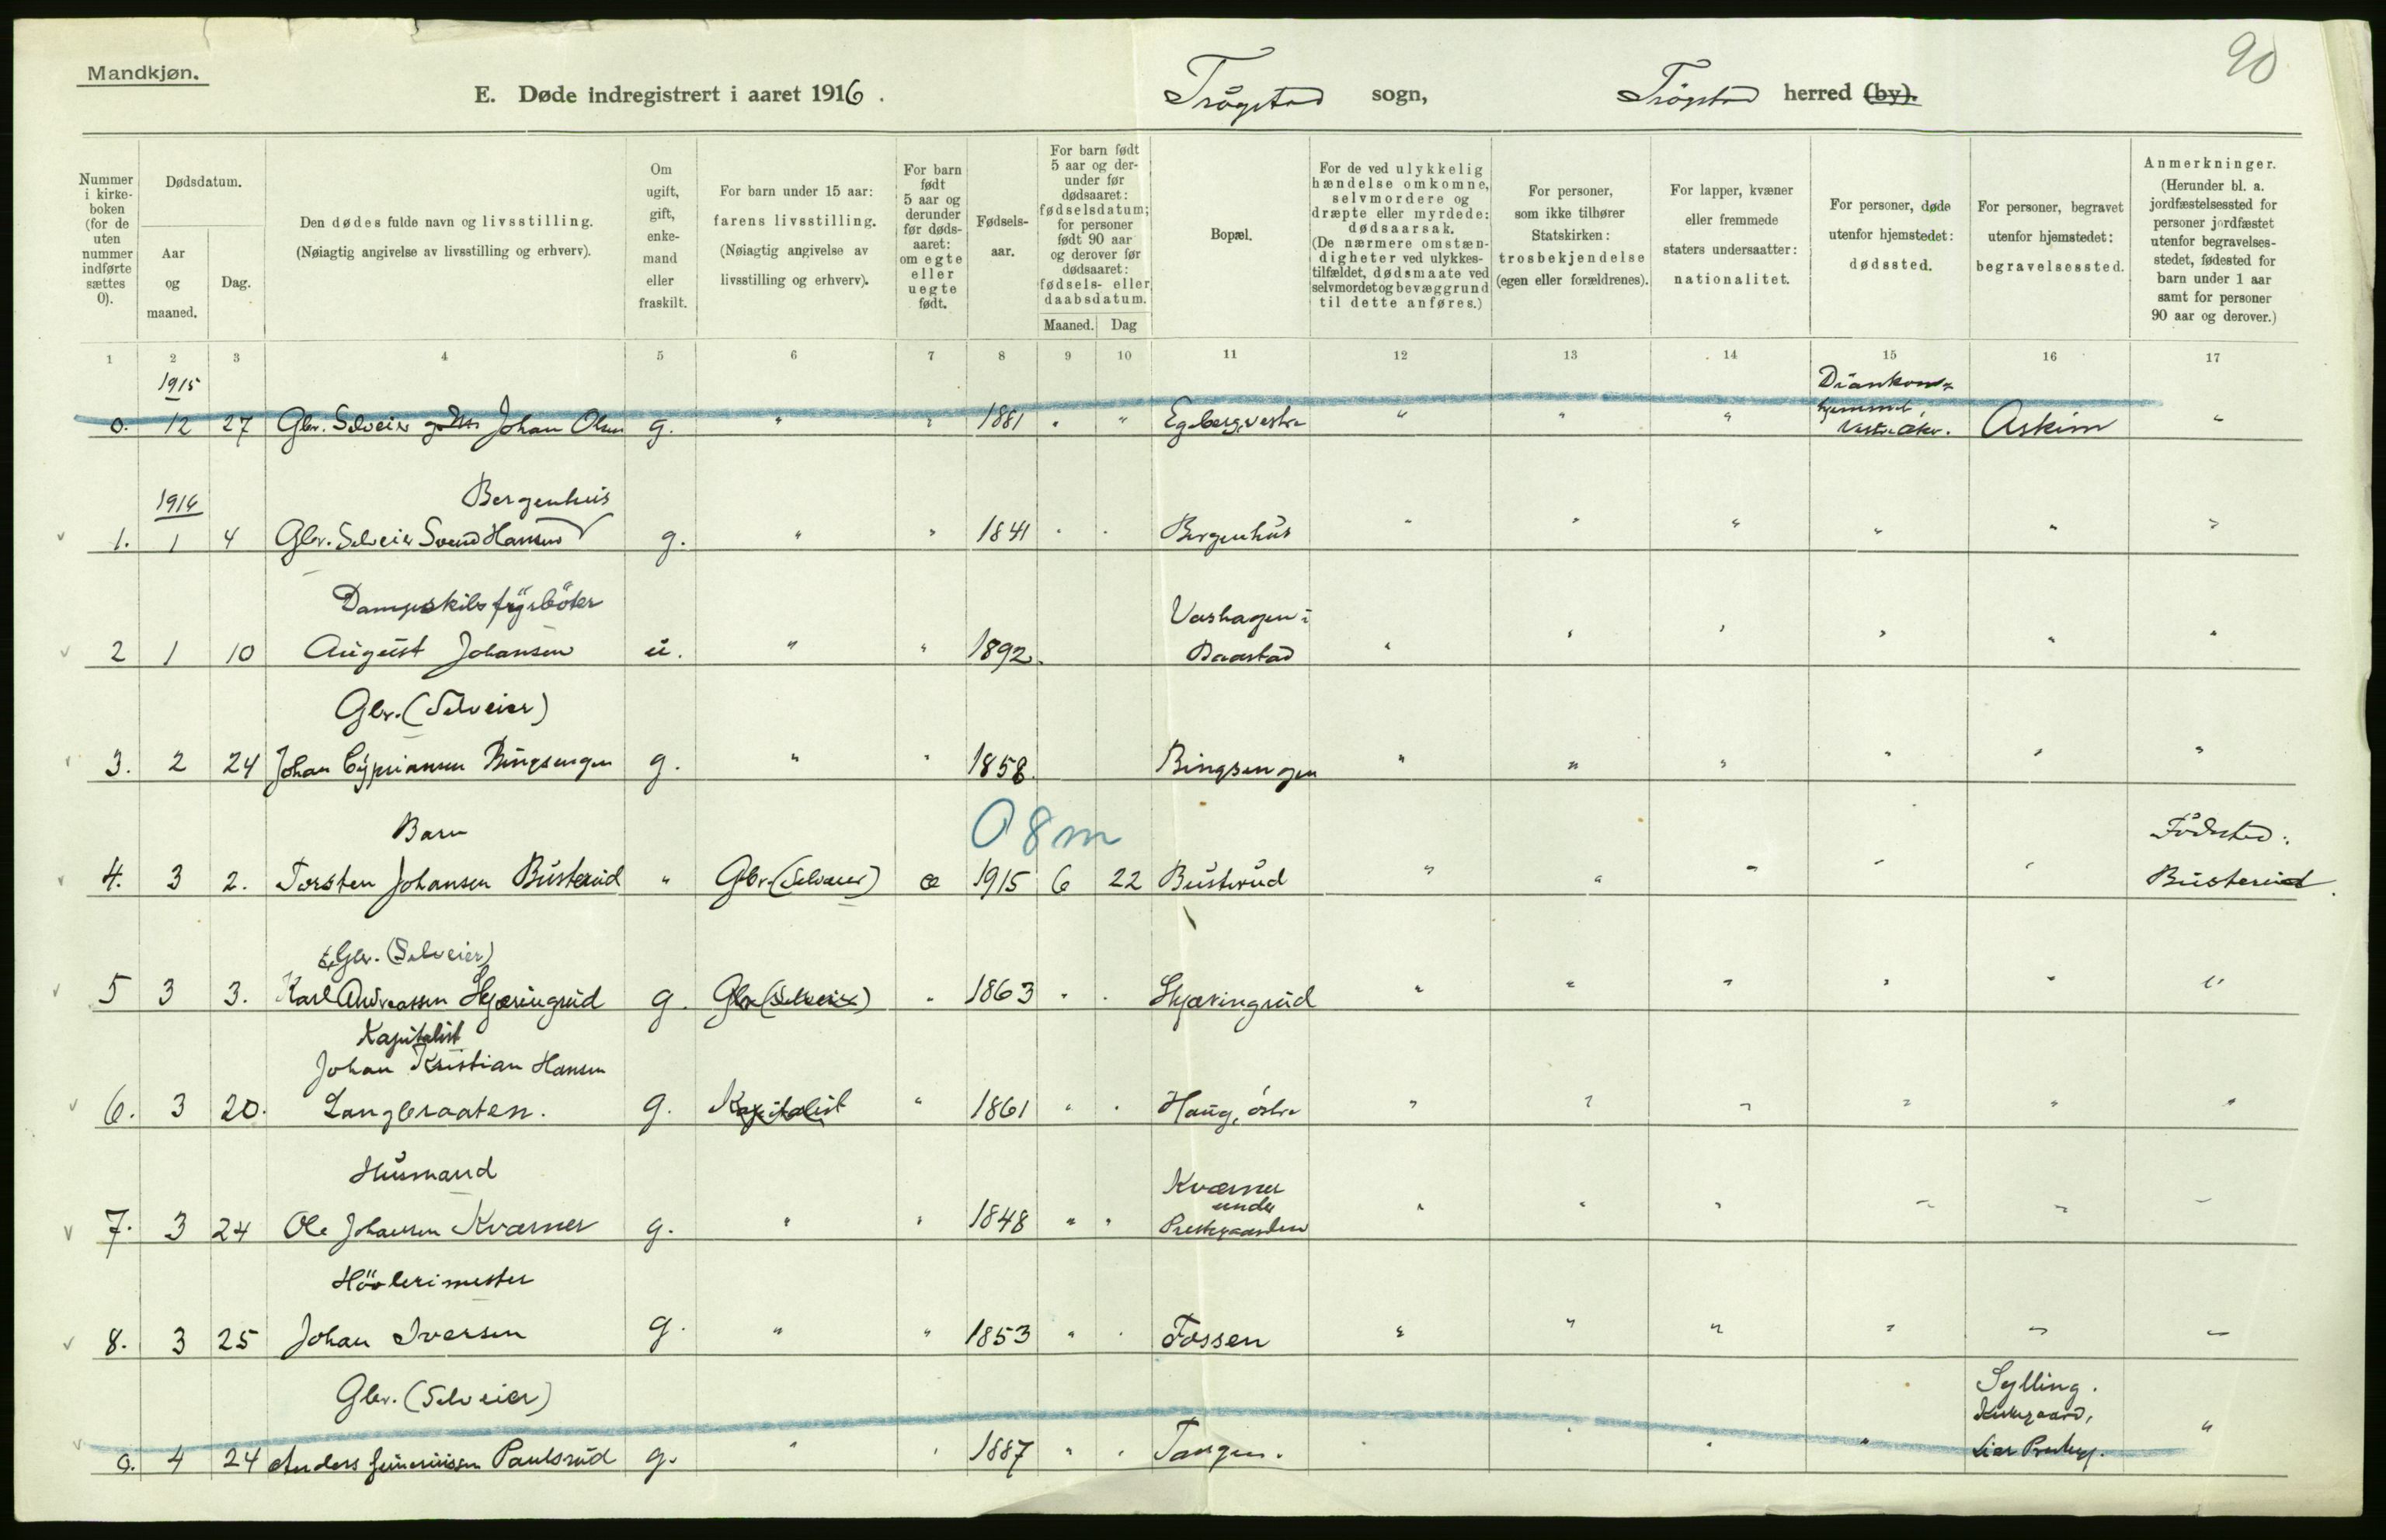 90
Mandkjøn.
E. Døde indregistrert i aaret 1916. Trøgstad sogn, Trøgstad herred (by).
Nummer i kirkeboken (for de uten nummer indførte sættes 0).
Dødsdatum.
Aar og maaned.
Dag.
Den dødes fulde navn og livsstilling.
(Nøiagtig angivelse av livsstilling og erhverv).
Om ugift, gift, enkemand eller fraskilt.
For barn under 15 aar: farens livsstilling.
(Nøiagtig angivelse av livsstilling og erhverv).
For barn født 5 aar og derunder før dødsaaret: om egte eller uegte født.
Fødselsaar.
For barn født 5 aar og derunder før dødsaaret: fødselsdatum; for personer født 90 aar og derover før dødsaaret: fødsels- eller daabsdatum.
Maaned. Dag
Bopæl.
For de ved ulykkelig hændelse omkomne, selvmordere og dræpte eller myrdede: dødsaarsak.
(De nærmere omstændigheter ved ulykkestilfældet, dødsmaate ved selvmordet og bevæggrund til dette anføres.)
For personer, som ikke tilhører Statskirken: trosbekjendelse (egen eller forældrenes).
For lapper, kvæner eller fremmede staters undersaatter: nationalitet.
For personer, døde utenfor hjemstedet: dødssted.
For personer, begravet utenfor hjemstedet: begravelsessted.
Anmerkninger.
(Herunder bl. a. jordfæstelsessted for personer jordfæstet utenfor begravelsesstedet, fødested for barn under 1 aar samt for personer 90 aar og derover.)
1 2 3 4 5 6 7 8 9 10 11 12 13 14 15 16 17
1915
0. 12 27 Gbr. Selveier Johan Olsen g. " " 1881 " " Egeberg, vestre " " " Diakonhjemmet, Vestre Aker. Askim "
1916 Bergenhus
1. 1 4 Gbr. Selveier Svend Hansen g. " " 1841 " " Bergenhus " " " " " "
Dampskibsfyrbøter Vashagen i
2 1 10 August Johansen u. " " 1892. Baastad " " " " " "
Gbr. (Selveier)
3. 2 24 Johan Cypriansen Bingsengen g. " " 1858. Bingsengen " " " " " "
Barn 0 8 m Fødested:
4. 3 2. Torsten Johansen Busterud " Gbr. (Selveier) æ 1915 6 22 Busterud " " " " " Busterud.
Gbr. (Selveier)
5 3 3. Karl Andreassen Skjæringrud g. Gbr. (Selveier) " 1863 " " Skjæringrud " " " " " "
Kapitalist
Johan Kristian Hansen
6. 3 20. Langbraaten. g. Kapitalist " 1861 " " Haug, østre " " " " " "
Husmand Kværner under
7. 3 24 Ole Johansen Kværner g. " " 1848 " " Prestegaarden " " " " " "
Høvlerimester
8. 3 25 Johan Iversen g. " " 1853 " " Fossen " " " " " "
Gbr. (Selveier) Sylling. Kirkegaard,
0. 4 24 Anders Paulsrud g. " " 1887 " " Tangen. " " " " Lier "